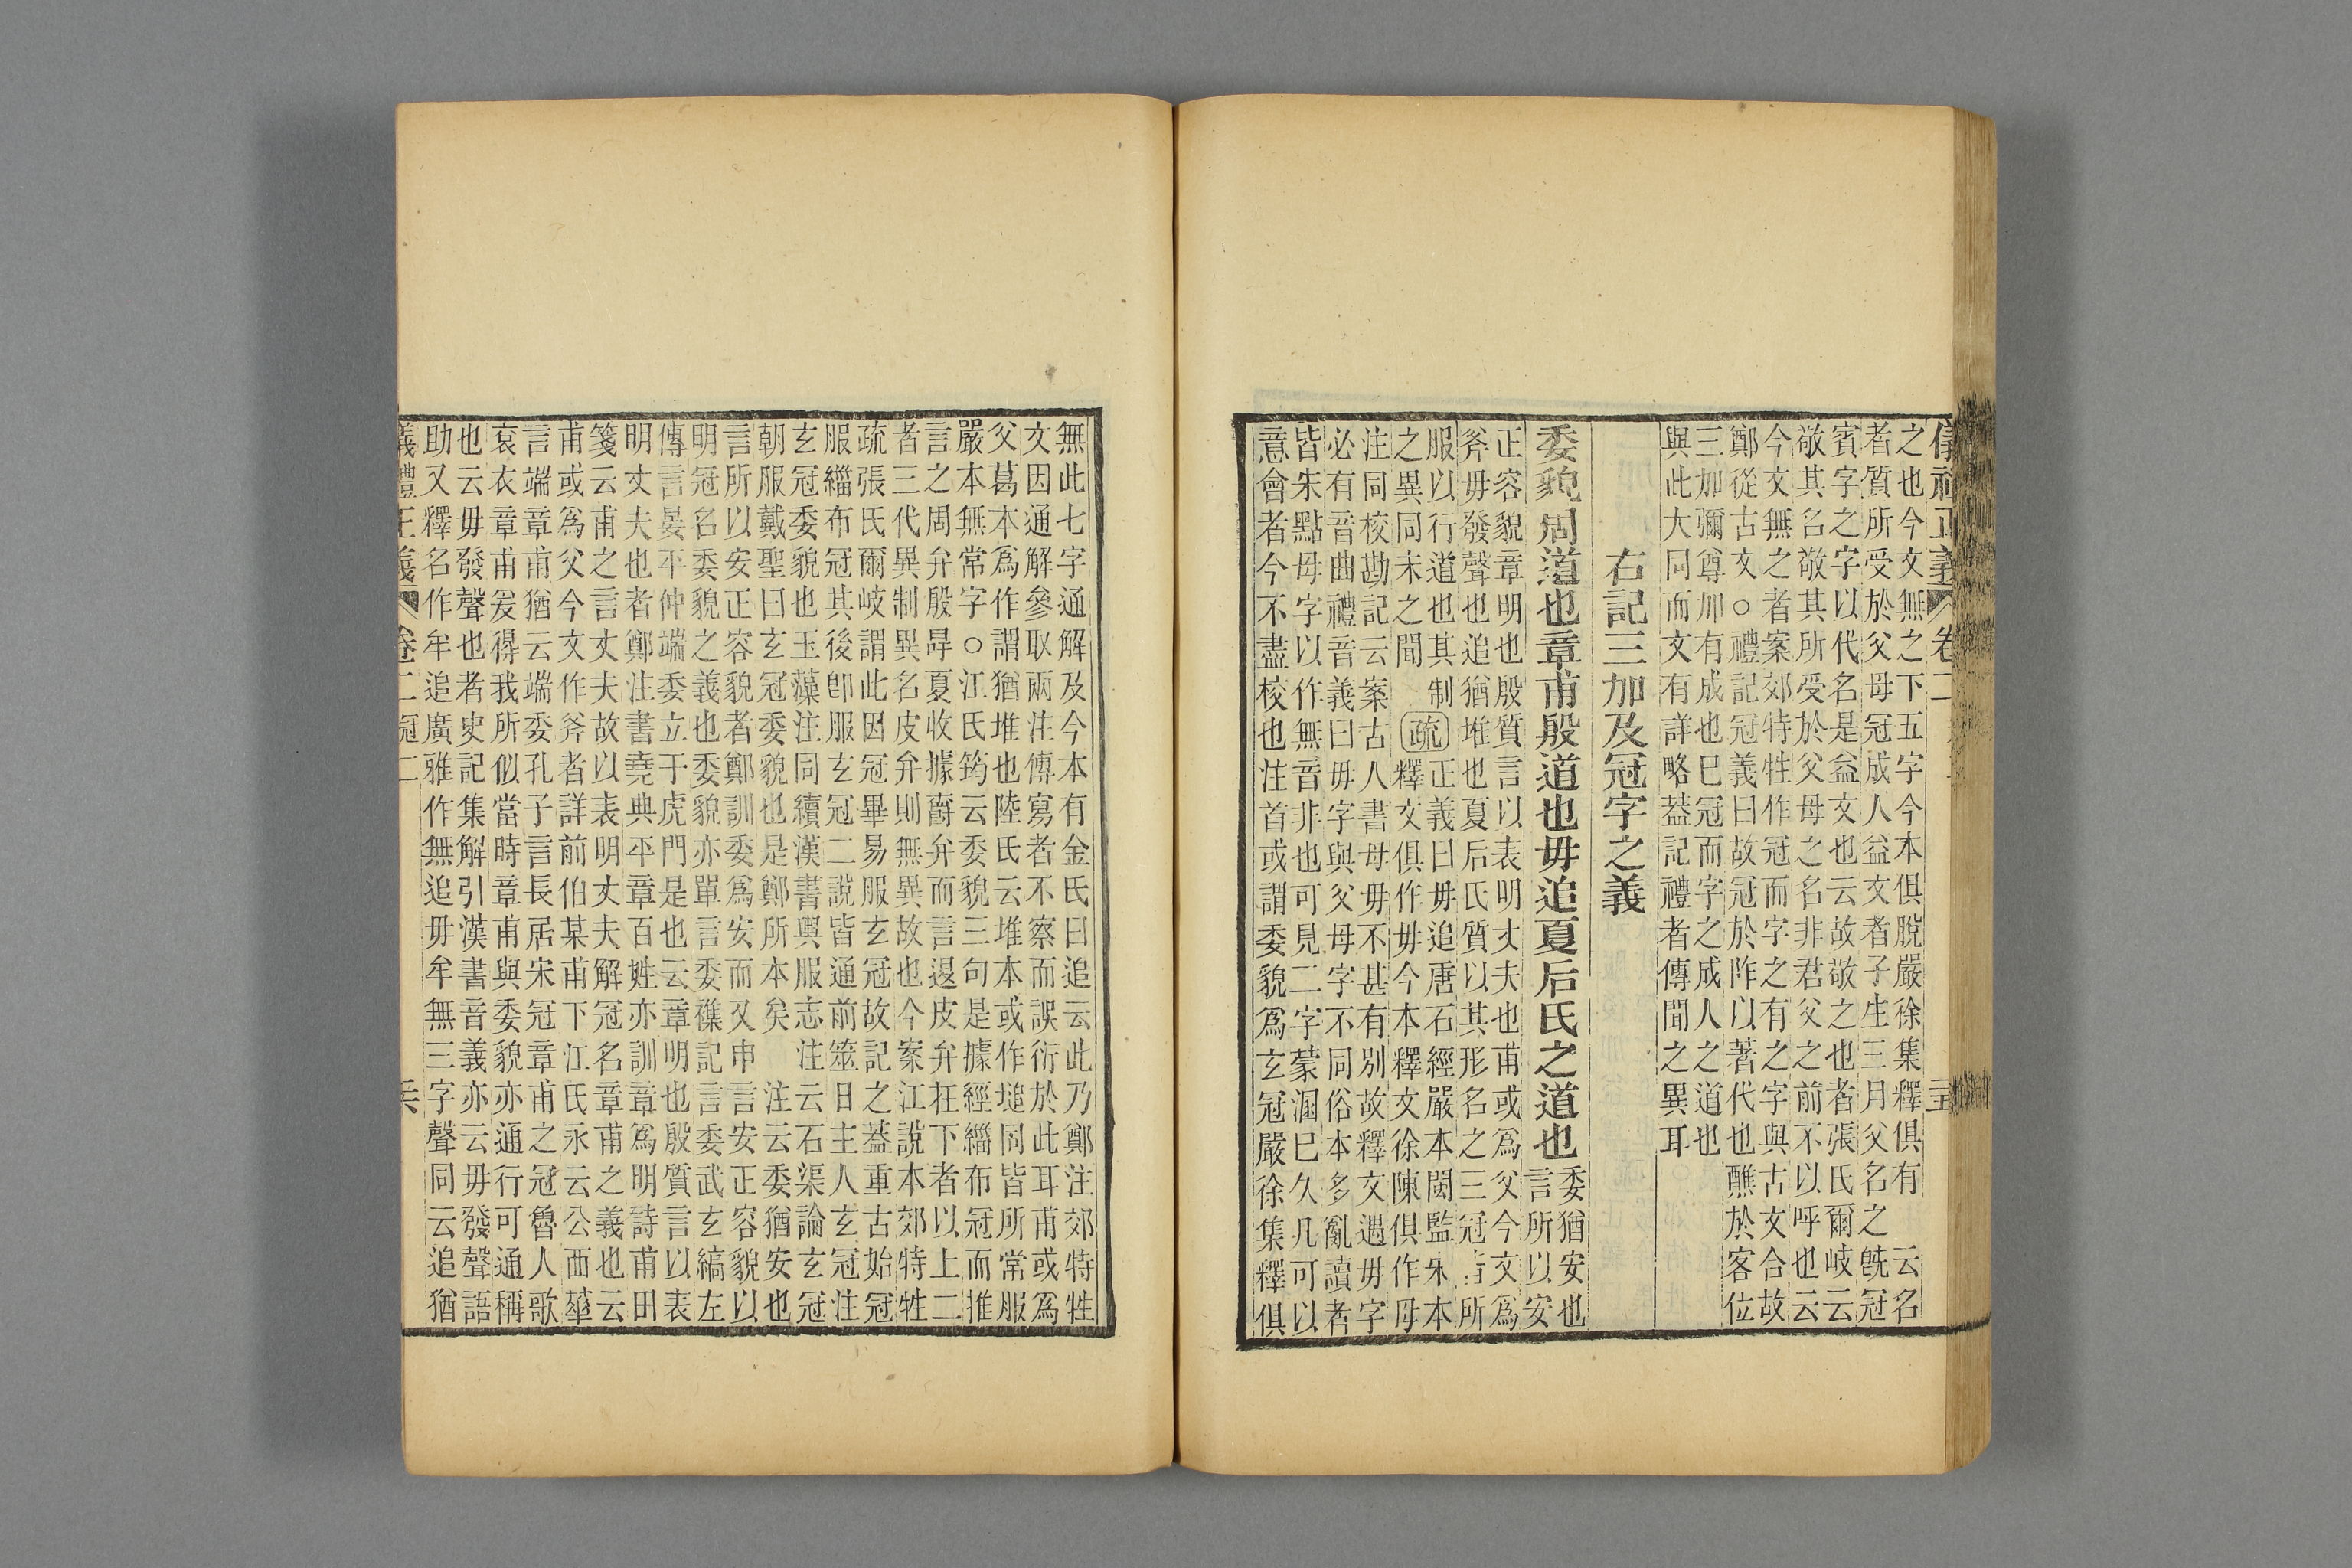 之也今文無之下五字今本俱脫嚴徐集釋俱有 云名
者質所受於父母冠成人益文者子生三月父名之旣冠
賓字之字以代名是益文也云故敬之也者張氏爾岐云
敬其名敬其所受於父母之名非君父之前不以呼也云
今文無之者案郊特牲作冠而字之有之字與古文合故
鄭從古文○禮記冠義曰故冠於阼以著代也 醮於客位
三加彌尊加有成也已冠而字之成人之道也
與此大同而文有詳略葢記禮者傳聞之異耳
右記三加及冠字之義
委貌周道也章甫殷道也毋追夏后氏之道也
委猶安也
言所以安
正容貌章明也殷質言以表明丈夫也甫或爲父今文爲
斧毋發聲也追猶堆也夏后氏質以其形名之三冠 所
服以行道也其制
之異同未之聞
疏
正義曰毋追唐石經嚴本閩監 本
釋文俱作毋今本釋文徐陳俱作母
注同校勘記云案古人書母毋不甚有別故釋文遇毋字
必有音曲禮音義曰毋字與父母字不同俗本多亂讀者
皆朱點母字以作無音非也可見二字蒙溷已久几可以
意會者今不盡校也注首或謂委貌爲玄冠嚴徐集釋俱
無此七字通解及今本有金氏曰追云此乃鄭注郊特牲
文因通解參取兩注傳寫者不察而誤衍於此耳甫或爲
父葛本爲作謂猶堆也陸氏云堆本或作塠同皆所常服
嚴本無常字○江氏筠云委貌三句是據經緇布冠而推
言之周弁殷冔夏收據爵弁而言退皮弁在下者以上二
者三代異制異名皮弁則無異故也今案江說本郊特牲
疏張氏爾岐謂此因冠畢易服玄冠故記之葢重古始冠
服緇布冠其後卽服玄冠二說皆通前筮日主人玄冠注
玄冠委貌也玉藻注同續漢書輿服志注云石渠論玄冠
朝服戴聖曰玄冠委貌也是鄭所本矣 注云委猶安也
言所以安正容貌者鄭訓委爲安而又申言安正容貌以
明冠名委貌之義也委貌亦單言委襍記言委武玄縞左
傳言晏平仲端委立于虎門是也云章明也殷質言以表
明丈夫也者鄭注書堯典平章百姓亦訓章爲明詩甫田
箋云甫之言丈夫故以表明丈夫解冠名章甫之義也云
甫或爲父今文作斧者詳前伯某甫下江氏永云公西蕐
言端章甫猶云端委孔子言長居宋冠章甫之冠魯人歌
袞衣章甫爰得我所似當時章甫與委貌亦通行可通稱
也云毋發聲也者史記集解引漢書音義亦云毋發聲語
助又釋名作牟追廣雅作無追毋牟無三字聲同云追猶